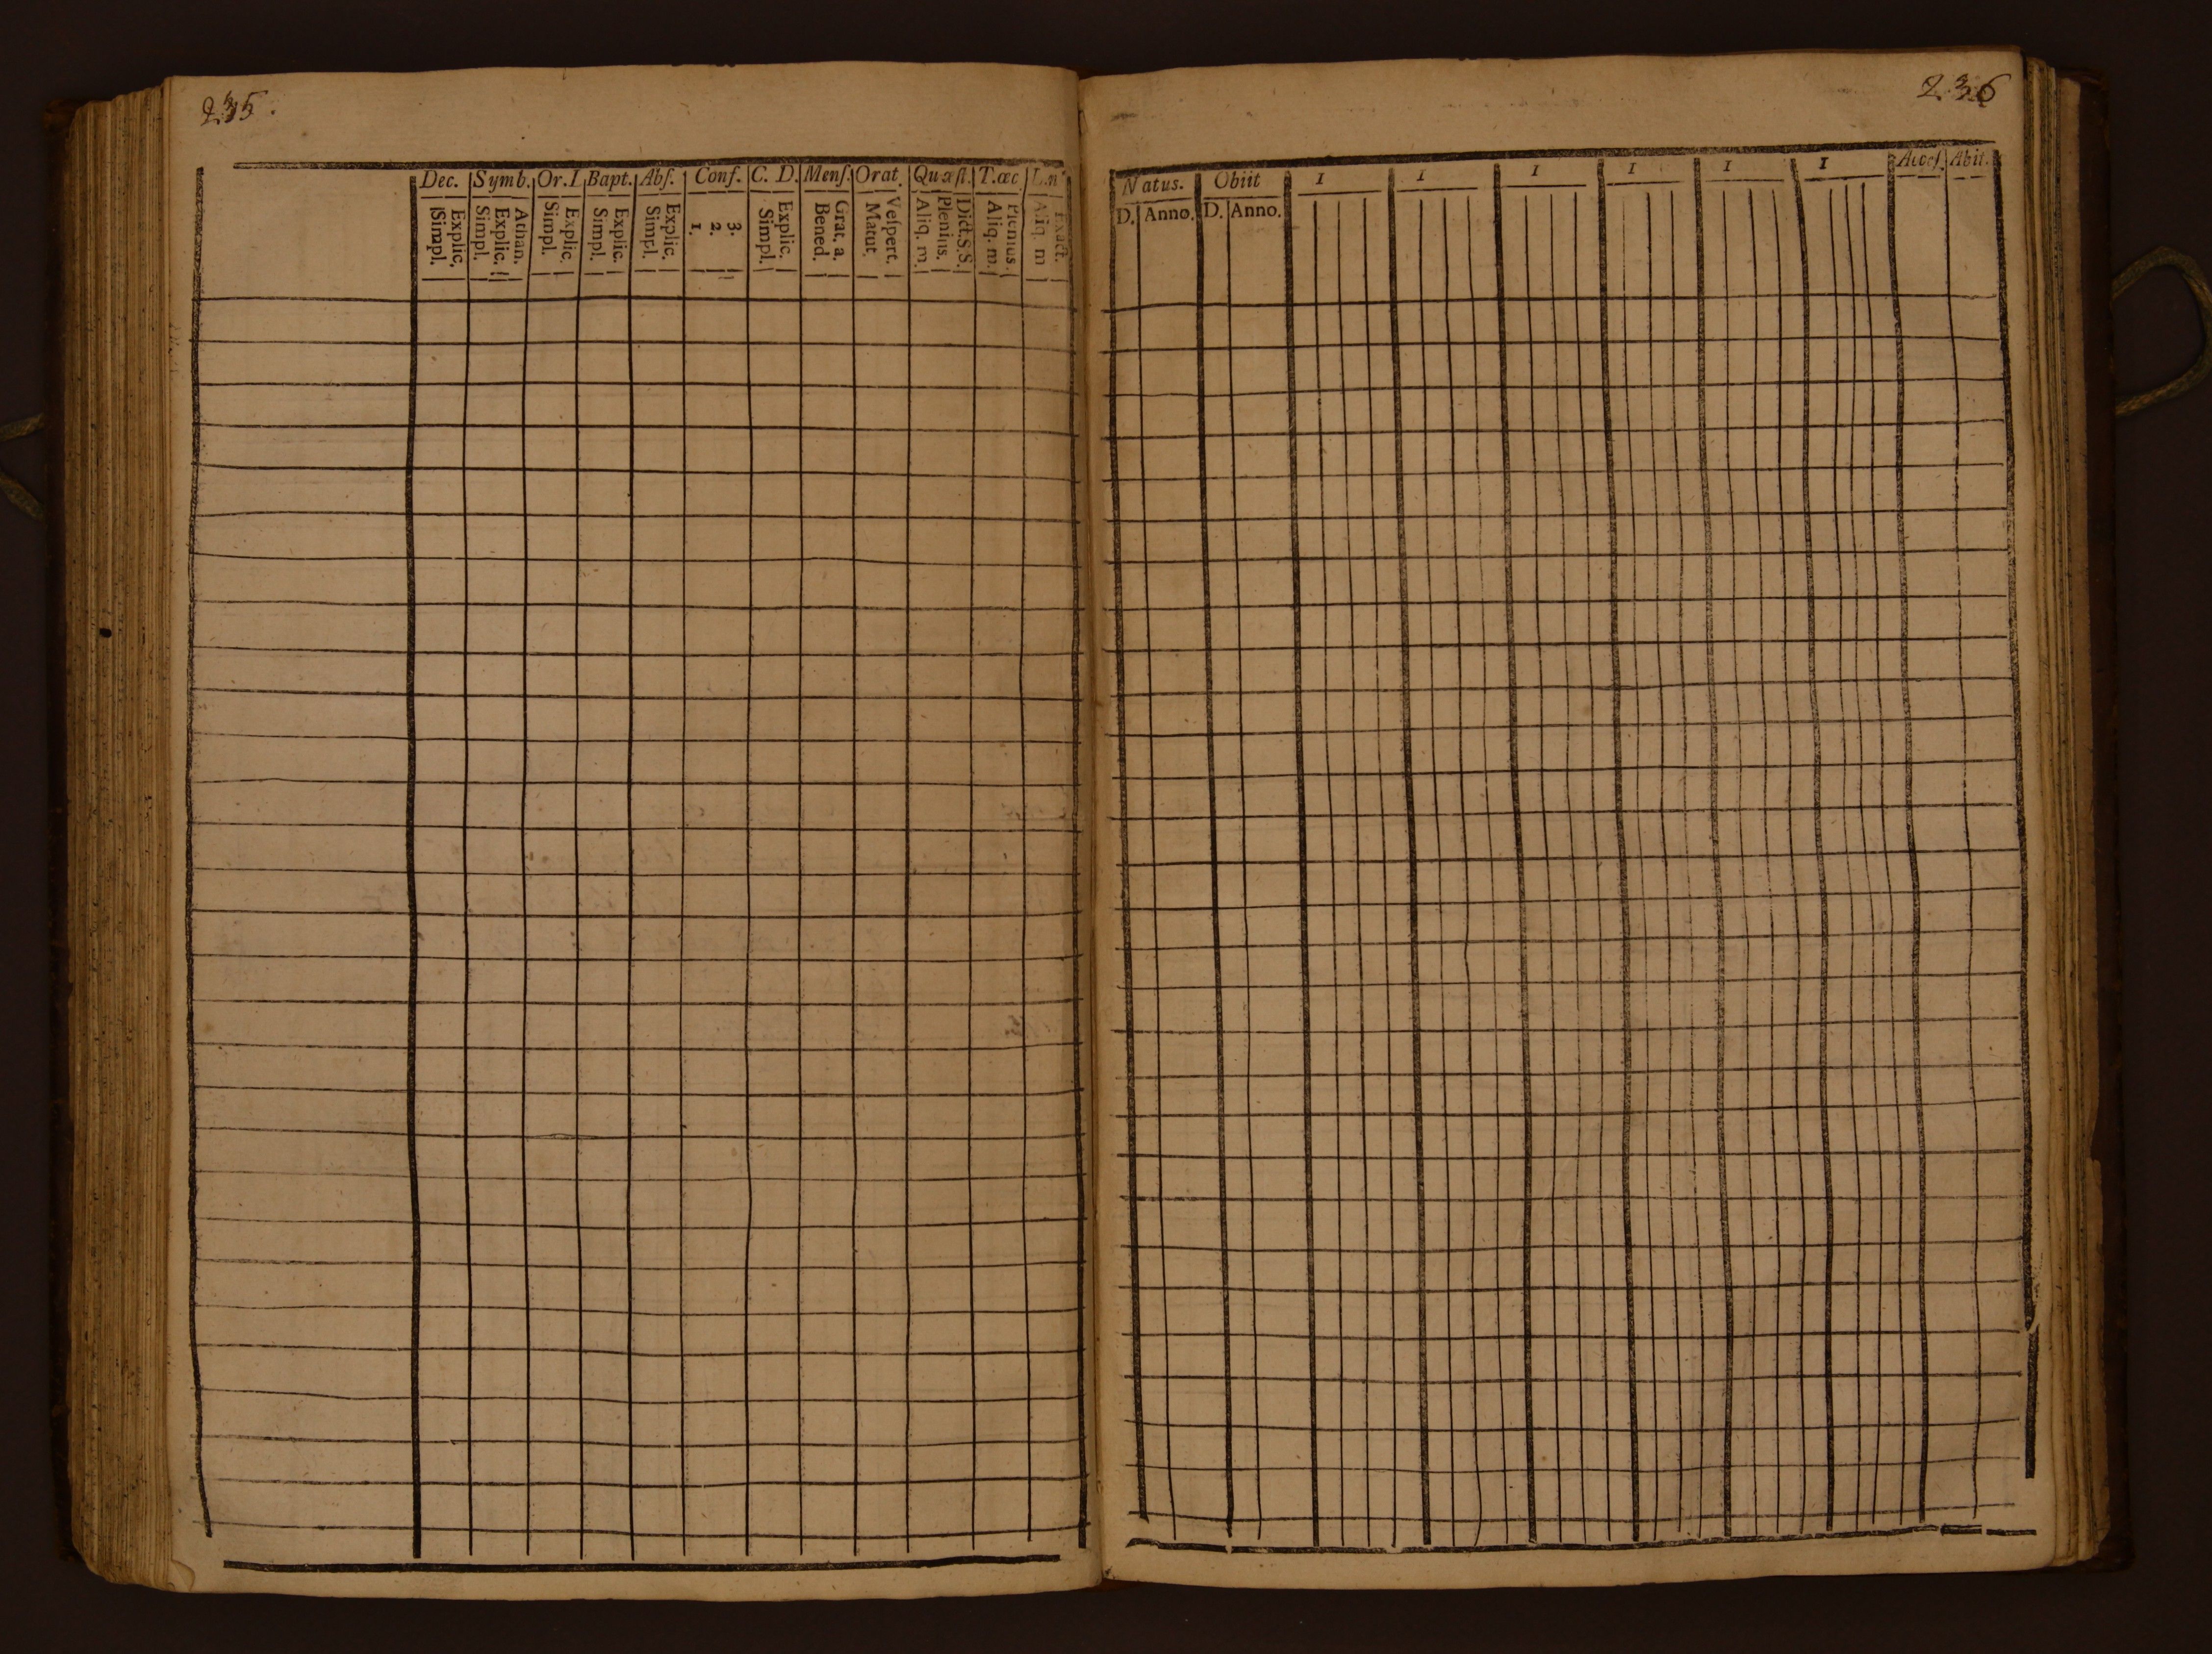 235.
Dec. Symb. Or.I. Bapt. Abſ. Conf. C. D. Menſ. Orat. Quæſt. T.œc
Explic. Simpl. Athan. Explic. Simpl. Explic. Simpl. Explic. Simpl. Explic. Simpl. 3. 2. 1. Explic. Simpl. Grat. a. Bened. Veſpert. Matut. Dict.S.S. Plenius. Aliq. m. Plenius. Aliq. m. Exact. Aliq. m
236
Natus. Obiit I I I I I I Acceſ. Abit.
D. Anno. D. Anno.